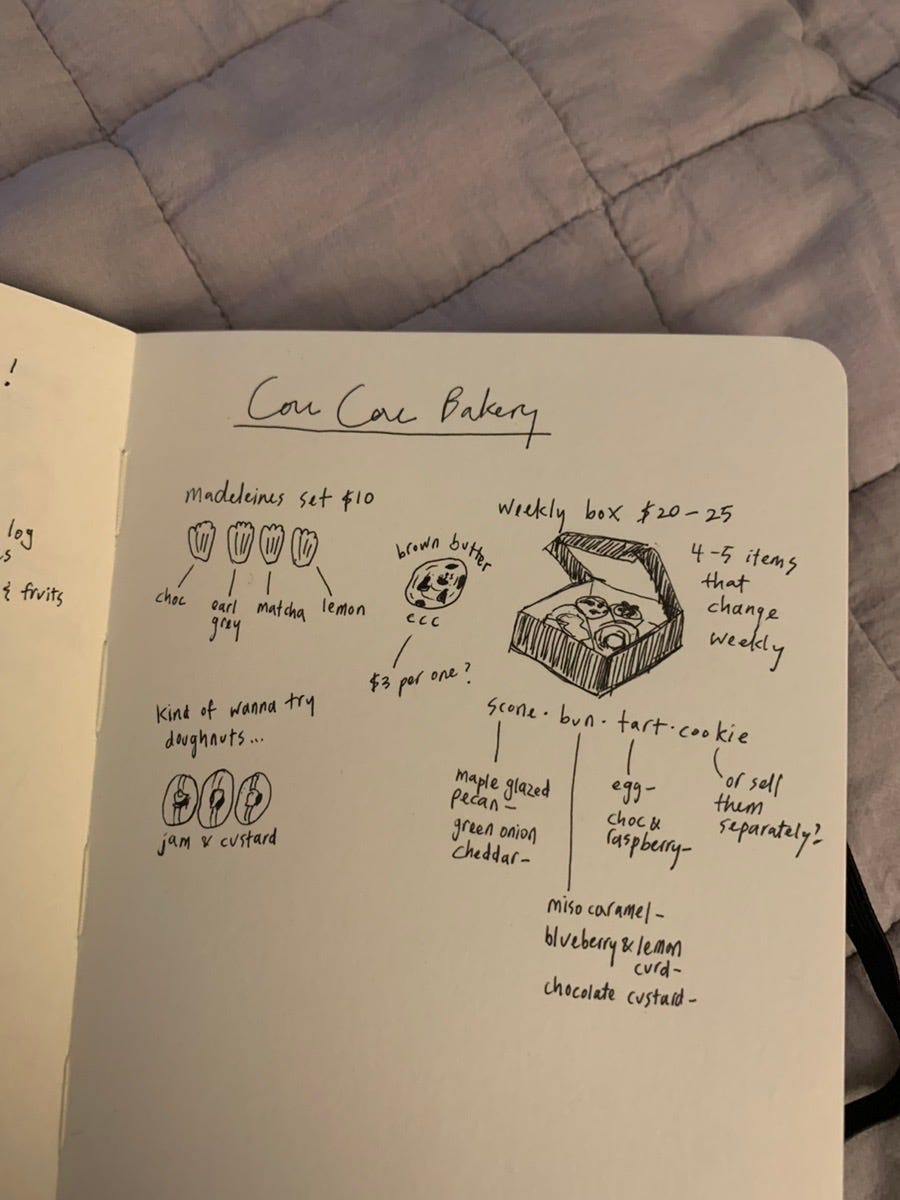 !
log
s
& fruits
Cou Cou Bakery
Madeleines set $10
choc
earl
grey
matcha
lemon
brown butter
ccc
$3 per one?
Weekly box $20-25
4-5 items
that
change
weekly
Kind of wanna try
doughnuts...
jam & custard
scone · bun · tart · cookie
maple glazed
pecan-
green onion
cheddar-
egg-
choc &
raspberry-
or sell
them
separately?
miso caramel-
blueberry & lemon
curd-
chocolate custard-